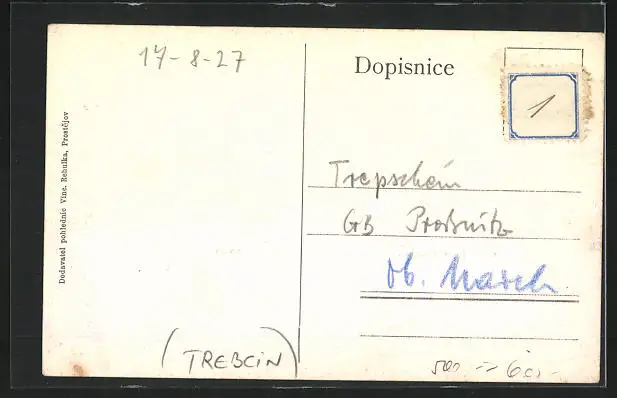 17-8-27
Dopisnice
1
Trepschein
GB Proßnitz
Ob. March
Dodavatel pohlednic Vinc. Řehulka, Prostějov
(TREBCIN)